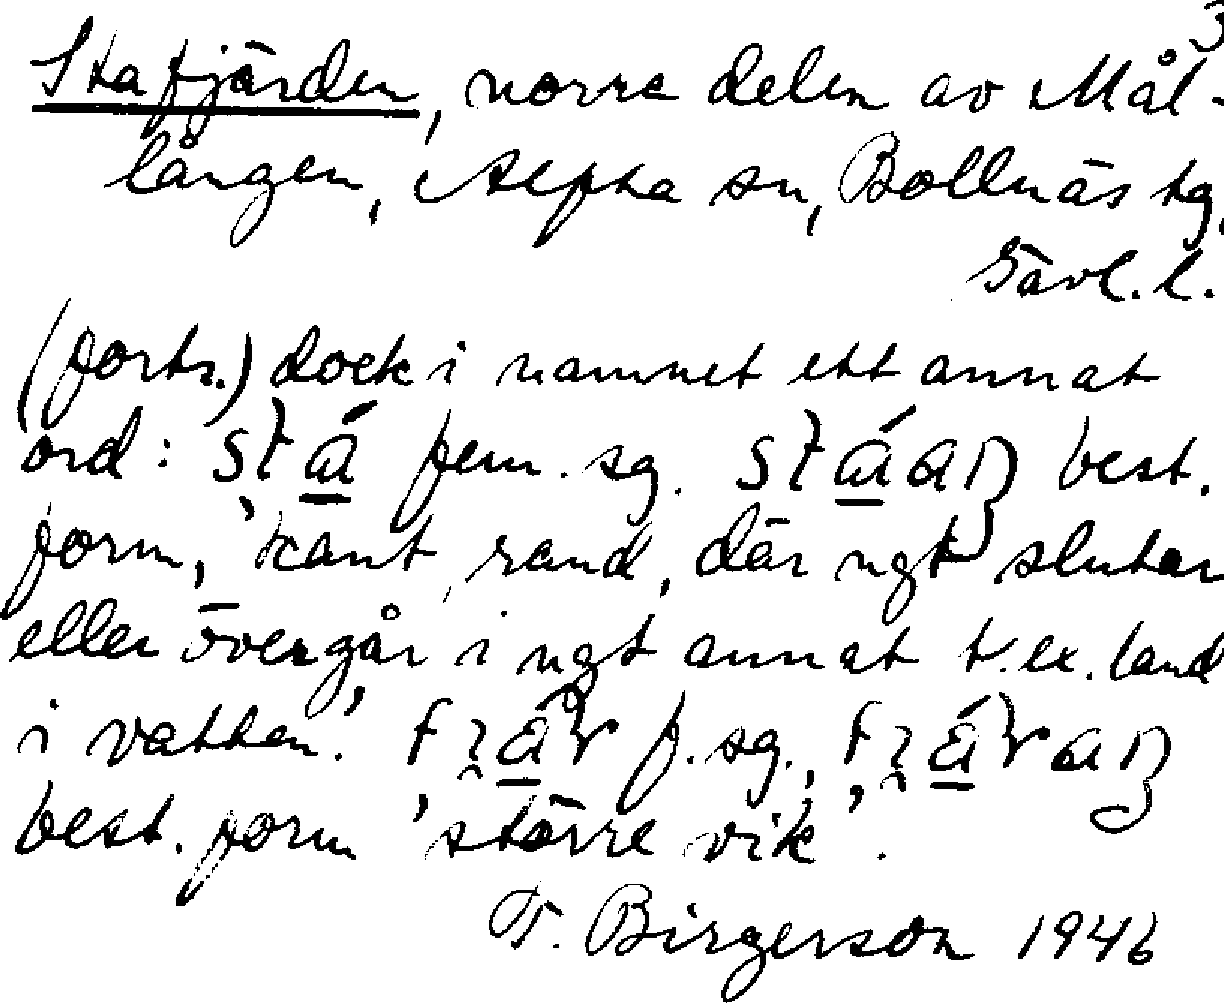 3
Stafjärden, norra delen av Mål-
lången, Alfta sn, Bollnäs tg,
Gävl. l.
(forts.) dock i namnet ett annat
ord: fem. sg. best.
form, 'kant, rand, där ngt slutar
eller övergår i ngt annat t.ex. land
i vatten.' f. sg.,
best. form 'större vik'.
T. Birgerson 1946